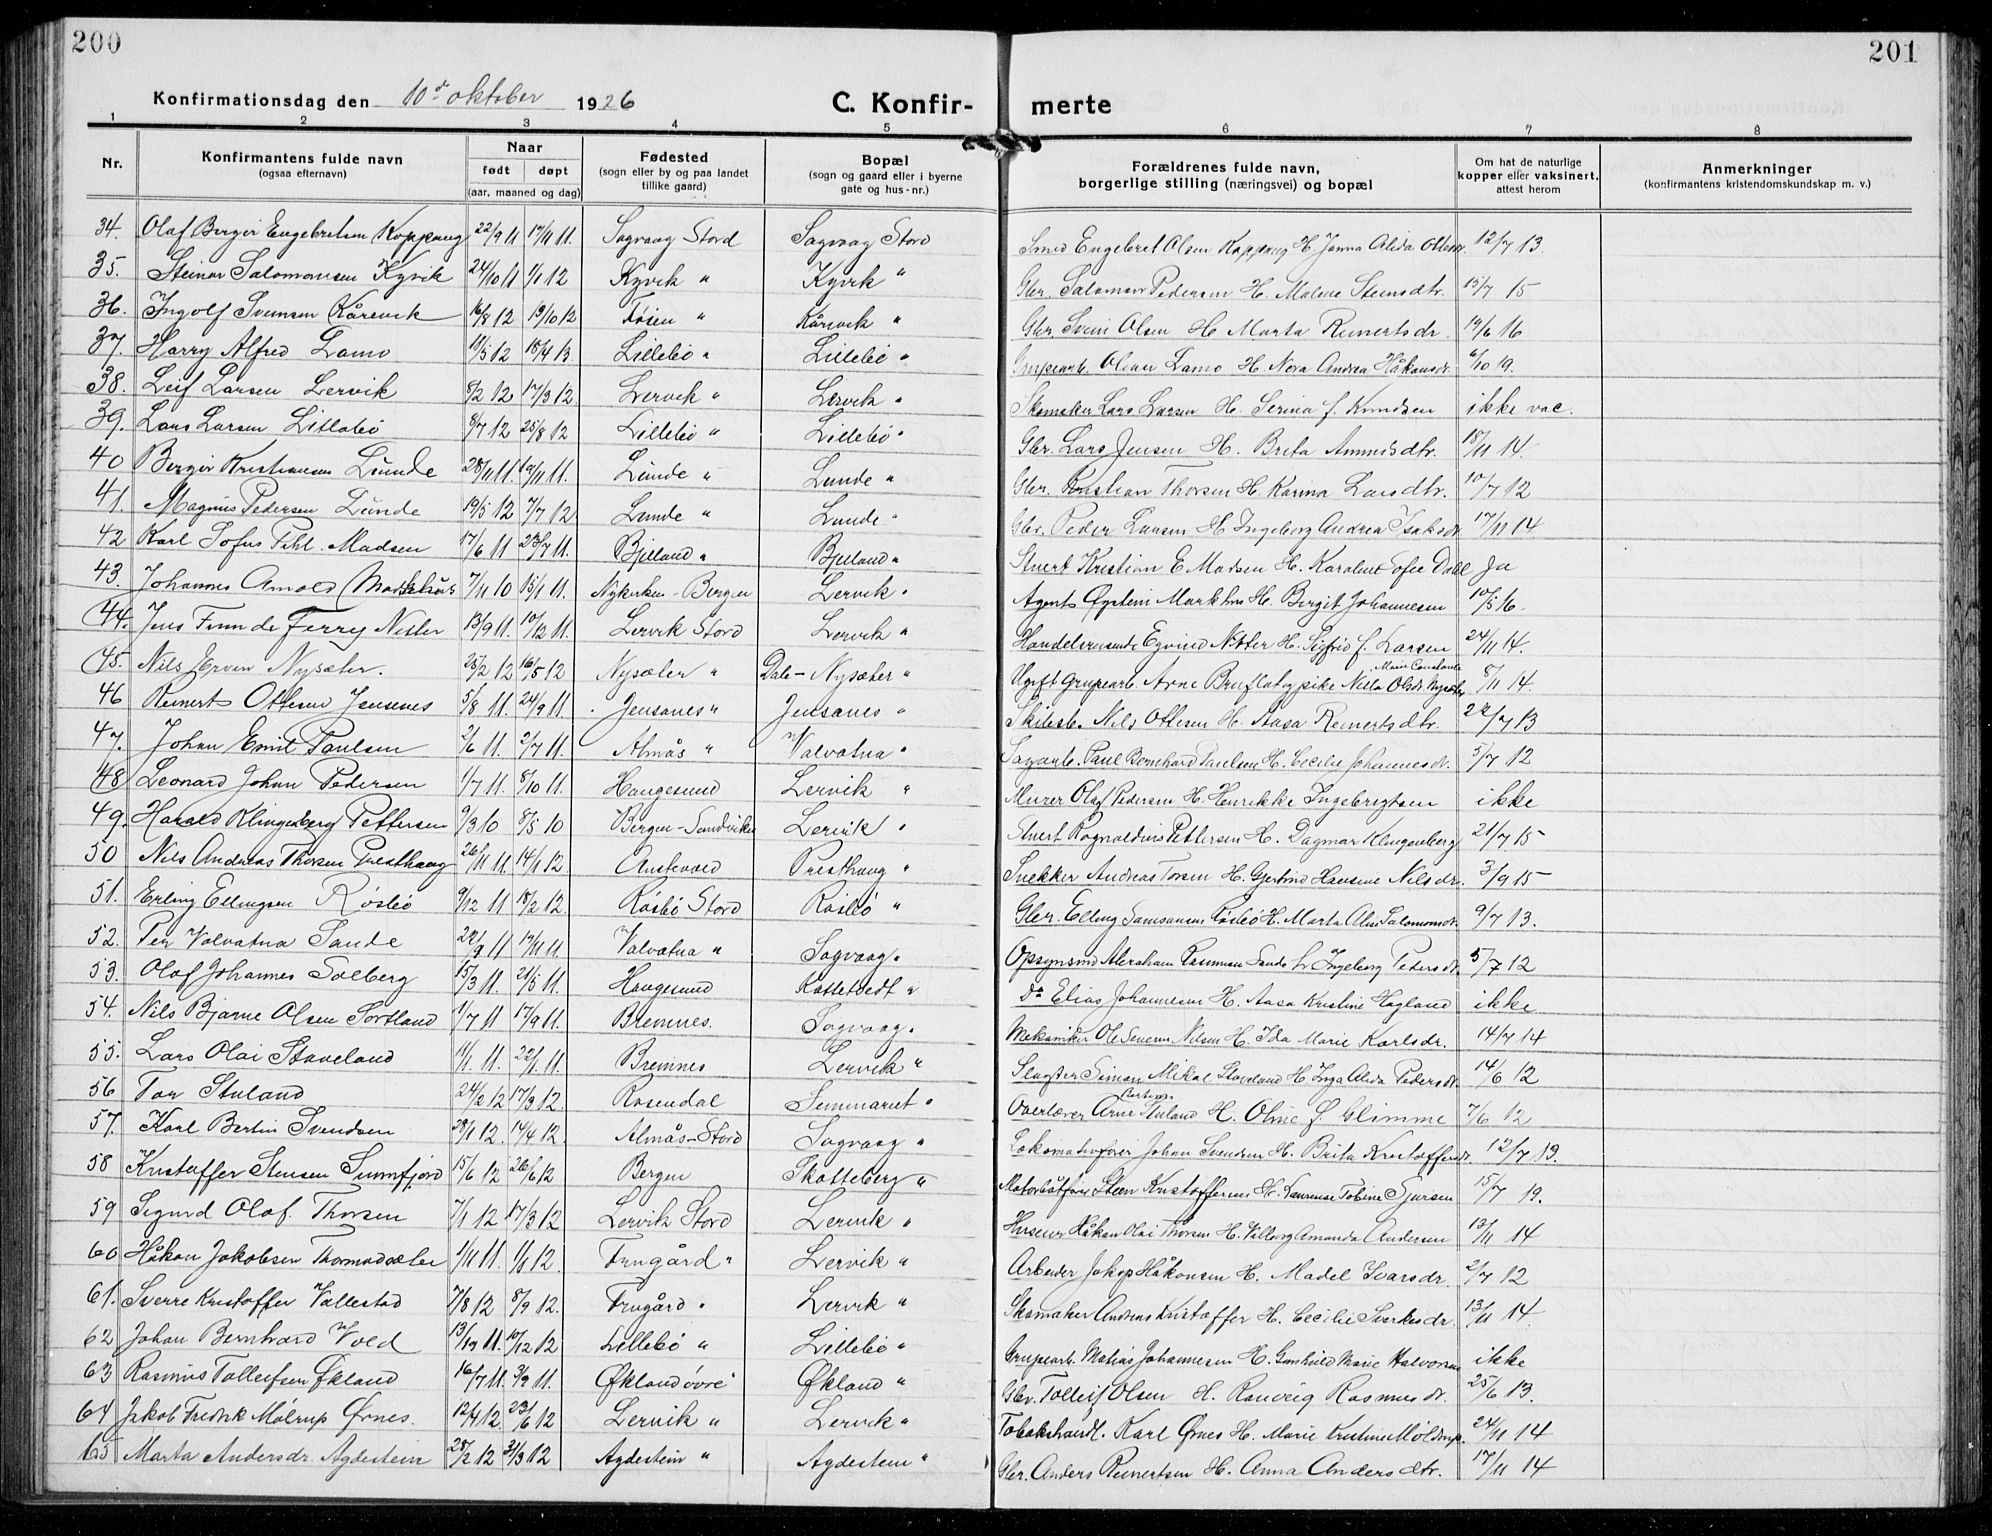 200
201
Konfirmationsdag den 10de oktober 1926
C. Konfir-
merte
1 2 3 4 5 6 7 8
Nr.
Konfirmantens fulde navn
(ogsaa efternavn)
Naar
født døpt
(aar, maaned og dag)
Fødested
(sogn eller by og paa landet
tillike gaard)
Bopæl
(sogn og gaard eller i byerne
gate og hus-nr.)
Forældrenes fulde navn,
borgerlige stilling (næringsvei) og bopæl
Om hat de naturlige
kopper eller vaksinert,
attest herom
Anmerkninger
(konfirmantens kristendomskundskap m. v.)
34. Olaf Berger Engebretsen Koppang 22/9 11 19/11 11. Sagvaag Stord Sagvaag Stord Smed Engebret Olsen Koppang H. Janna Alida 12/7 13.
35. Steinar Salomonsen Kyvik 24/10 11 1/1 12 Kyvik " Kyvik " Gbr. Salamon Pedersen H. Malene Steinsdtr. 15/7 15
36. Ingolf Svensen Kårevik 16/8 12 19/10 12 Føsen " Kårevik " Gbr. Svein Olsen H. Marta Reinertsdr. 19/6 16
37. Harry Alfred Lamo 10/5 12 18/4 13. Lillebø " Lillebø " Grupearb. Oliver Lamo H. Nora Andrea Håkonsdr. 6/10 19.
38. Leif Larsen Lervik 8/2 12 17/3 12 Lervik " Lervik " Skomaker Lars Larsen H. Serina f. Knudsen ikke vac.
39. Lars Larsen Litlabø 8/7 12 25/8 12 Lillebø " Lillebø " Gbr. Lars Jensen H. Brita Amundsdtr. 18/11 14.
40 Berger Kristiansen Lunde 28/11 11. 19/11 11. Lunde " Lunde " Gbr. Kristian Thorsen H. Karina Larsdtr. 10/7 12
41. Magnus Pedersen Lunde 19/5 12 7/7 12 Lunde " Lunde " Gbr. Peder Larsen H. Ingeborg Andrea Isaksdr. 17/11 14
42 Karl Sofus Pihl. Madsen 17/6 11 23/7 11. Bjelland " Bjelland " Stuert Kristian E. Madsen H. Karoline Sofie Dahl Ja
43. Johannes Arnold Markhus 7/11 10 15/1 11. Nykirken - Bergen Lervik " Agent Øystein Markhus H. Bergit Johannesen 10/5 16.
44. Jens Finn de Ferry Netter 13/9 11. 10/12 11. Lervik Stord Lervik " Handelsreisende Eyvind Netter H. Sigfrid f. Larsen 24/11 14.
45. Nils Erven Nysæter. 28/2 12 16/5 12 Nysæter " Dale - Nysæter " Ugift Grupearb. Arne Bruflat og pike Nilla Olsdr. Nysæter 8/11 14.
46 Reinert Ottesen Jensenes 5/8 11. 24/9 11. Jensanes " Jensanes " Nils Ottesen H. Aasa Reinertsdtr. 22/7 13
47. Johan Emil Paulsen 2/6 11. 2/7 11. Almås " Valvatna " Sagarb. Paul Bernhard Paulsen H. Cecilie Johannesdr. 5/7 12
48 Leonard Johan Pedersen 1/7 11. 8/10 11. Haugesund Lervik " Murer Olaf Pedersen H. Henrikke Ingebregtsen ikke
49. Harald Klingenberg Pettersen 9/3 10 8/5 10 Bergen-Sandviken Lervik " Stuert Ragnvaldius Pettersen H. Dagmar Klingenberg 21/7 15
50 Nils Andreas Thorsen Presthaug 26/11 11. 14/1 12 Austevold Presthaug " Snekker Andreas Torsen H. Gjertrud Hansine Nilsdr. 3/9 15
51. Erling Ellingsen Røsbø 9/12 11 18/2 12. Røsbø Stord Røsbø " Gbr. Elling Samsonsen Røsbø H. Marta Alis Salomonsdr. 9/7 13.
52. Per Valvatna Sande 22/9 11 19/11 11. Valvatna " Sagvaag " Opsynsmd Abraham Rasmussen Sande H. Ingeborg Pedersdr. 5/7 12
53. Olaf Johannes Solberg 15/3 11. 21/5 11. Haugesund Kattetvedt " Do Elias Johannesen H. Aasa Kristine Hagland ikke
54. Nils Bjarne Olsen Sortland 1/7 11 17/9 11. Bremnes. Sagvaag " Mekaniker Ole Severin Nilsen H. Ida Marie Karlsdr. 14/7 14
55. Lars Olai Staveland 11/1 11. 22/1 11. Bremnes Lervik " Slagter Simon Mikal Staveland H. Inga Alida Pedersdr. 14/6 12
56 Tor Stuland 24/2 12 17/3 12. Rosendal Seminariet " Overlærer Arne Stuland H. Oline f. Glimme 7/6 12
57. Karl Bertin Svendsen 28/1 12. 14/4 12. Almås - Stord Sagvaag " Lokomotivfører Johan Svendsen H. Brita Kristoffersdr. 12/7 13.
58 Kristoffer Stensen Sunnfjord 15/6 12 26/6 12 Bergen Skatteberg " Motorbåtfører Steen Kristoffersen H. Laurense Tobine Sjursen 15/7 19.
59 Sigurd Olaf. Thorsen 7/1 12 17/3 12 Lervik Stord Lervik " Håkon Olai Thorsen H. Valborg Amanda Andersen 13/11 14
60 Håkon Jakobsen Thormodsæter 1/11 11. 1/1 12. Frugård " Lervik " Arbeider Jakop Håkonsen H. Madel Ivarsdr. 2/7 12
61. Sverre Kristoffer Vallestad 7/8 12 8/9 12. Frugård " Lervik " Skomaker Andreas Kristoffer H. Cecilie Sverkesdr. 13/11 14.
62 Johan Bernhard Vold 13/12 11. 10/12 12 Lillebø " Lillebø " Grupearb. Matias Johannesen H. Gunhild Marie Halvorsen ikke
63 Rasmus Tolleifsen Økland 16/7 11. 3/9 11. Økland øvre Økland " Gbr. Tolleif Olsen H. Ranveig Rasmusdr. 25/6 13.
64 Jakob Fredrik Møltrup Ørnes. 12/4 12. 23/6 12 Lervik " Lervik " Tobakshandl. Karl Ørnes H. Marie Kristine Møldrup. 24/11 14
65 Marta Andersdr. Agdestein 28/2 12 31/3 12 Agdestein " Agdestein " Gbr. Anders Reinertsen H. Anna Andersdtr. 17/11 14